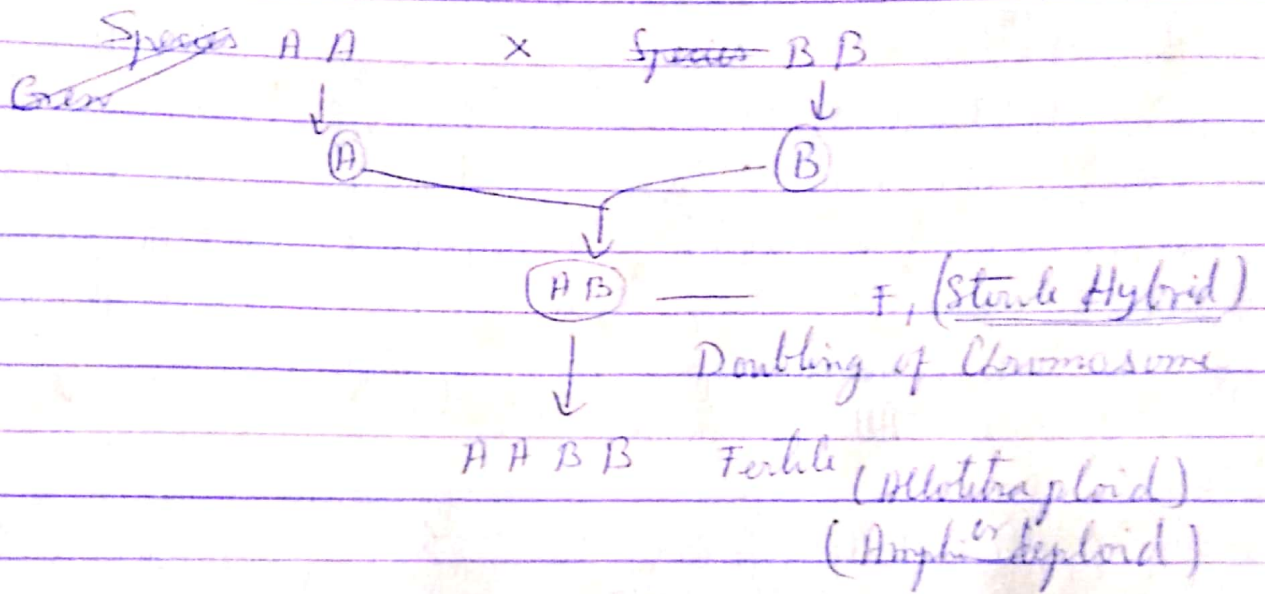 Species AA × Species BB
A B
AB F1 (Sterile Hybrid)
Doubling of Chromosome
AABB Fertile
(Allotetraploid)
or
(Amphideploid)